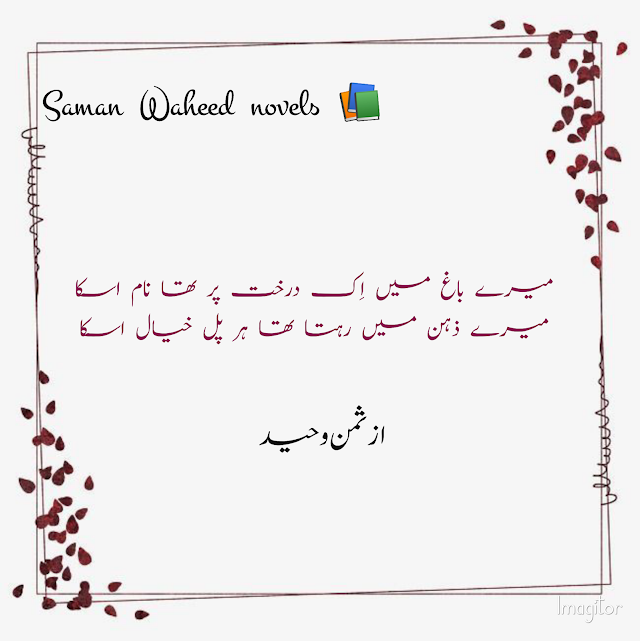 Saman Waheed novels 📚
میرے باغ میں اِک درخت پر تھا نام اسکا
میرے ذہن میں رہتا تھا ہر پل خیال اسکا
از ثمن وحید
Imagitor